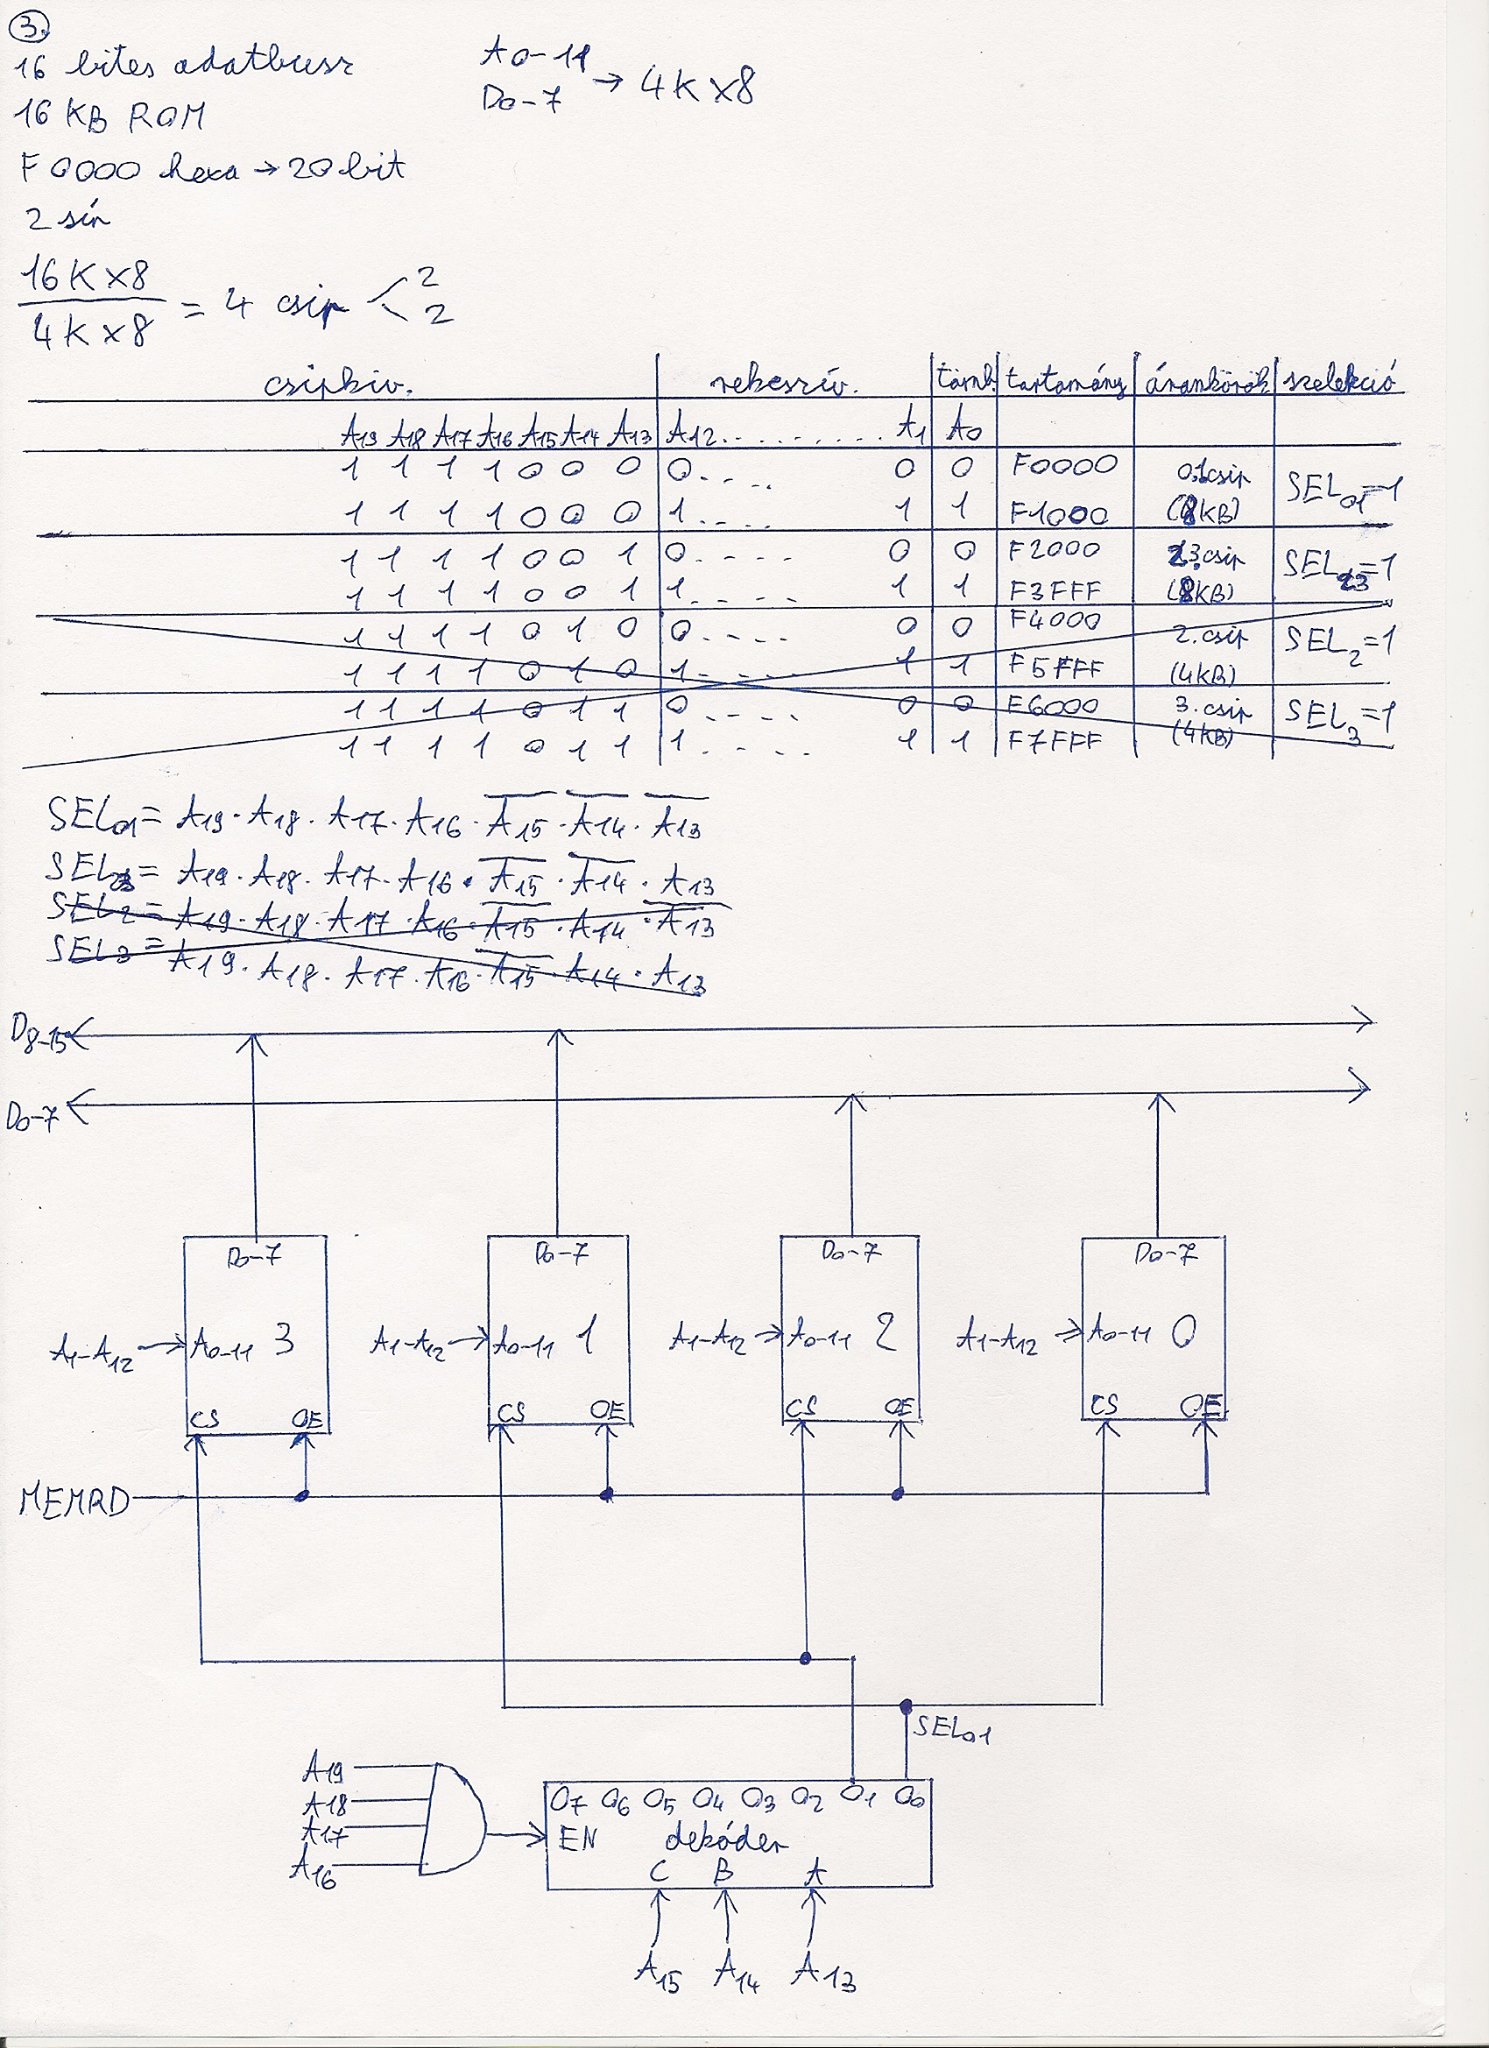 3.
16 bites adatbusz
A0-11
D0-7 → 4K x8
16 KB ROM
F0000 hexa → 20 bit
2 sín
16K x8
4K x8 = 4 csip < 2 2
csipkiv. rekeszív. tömb. tartomány áramkörök szelekció
A19 A18 A17 A16 A15 A14 A13 A12 ......... A1 A0
1 1 1 1 0 0 0 0 .... 0 0 F0000 0.1 csip SEL01=1
1 1 1 1 0 0 0 1 .... 1 1 F1000 (8KB)
1 1 1 1 0 0 1 0 .... 0 0 F2000 23. csip SEL23=1
1 1 1 1 0 0 1 1 .... 1 1 F3FFF (8KB)
1 1 1 1 0 1 0 0 .... 0 0 F4000 2. csip SEL2=1
1 1 1 1 0 1 0 1 .... 1 1 F5FFF (4KB)
1 1 1 1 0 1 1 0 .... 0 0 F6000 3. csip SEL3=1
1 1 1 1 0 1 1 1 .... 1 1 F7FFF (4KB)
SEL01 = A19 · A18 · A17 · A16 · A̅15 · A̅14 · A̅13
SEL23 = A19 · A18 · A17 · A16 · A̅15 · A̅14 · A13
SEL2 = A19 · A18 · A17 · A16 · A̅15 · A14 · A̅13
SEL3 = A19 · A18 · A17 · A16 · A̅15 · A14 · A13
D8-15
D0-7
D0-7 D0-7 D0-7 D0-7
A1-A12 → A0-11 3 A1-A12 → A0-11 1 A1-A12 → A0-11 2 A1-A12 → A0-11 0
CS OE CS OE CS OE CS OE
MEMRD
SEL01
A19
A18
A17
A16
O7 O6 O5 O4 O3 O2 O1 O0
EN dekóder
C B A
A15 A14 A13